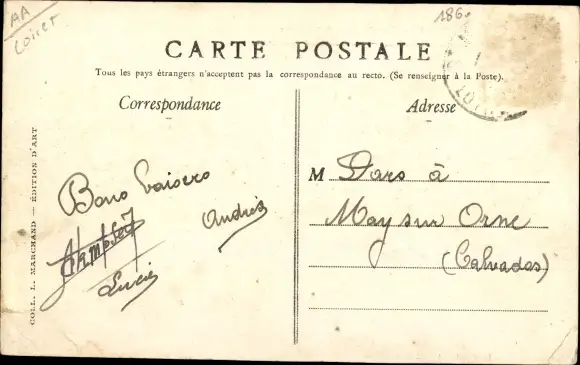 AA
Loiret
186
CARTE POSTALE
Tous les pays étrangers n'acceptent pas la correspondance au recto. (Se renseigner à la Poste).
Correspondance
Adresse
COLL. L. MARCHAND — ÉDITION D'ART
Bons baisers
Andrée
Lucie
M Dars à
May sur Orne
(Calvados)